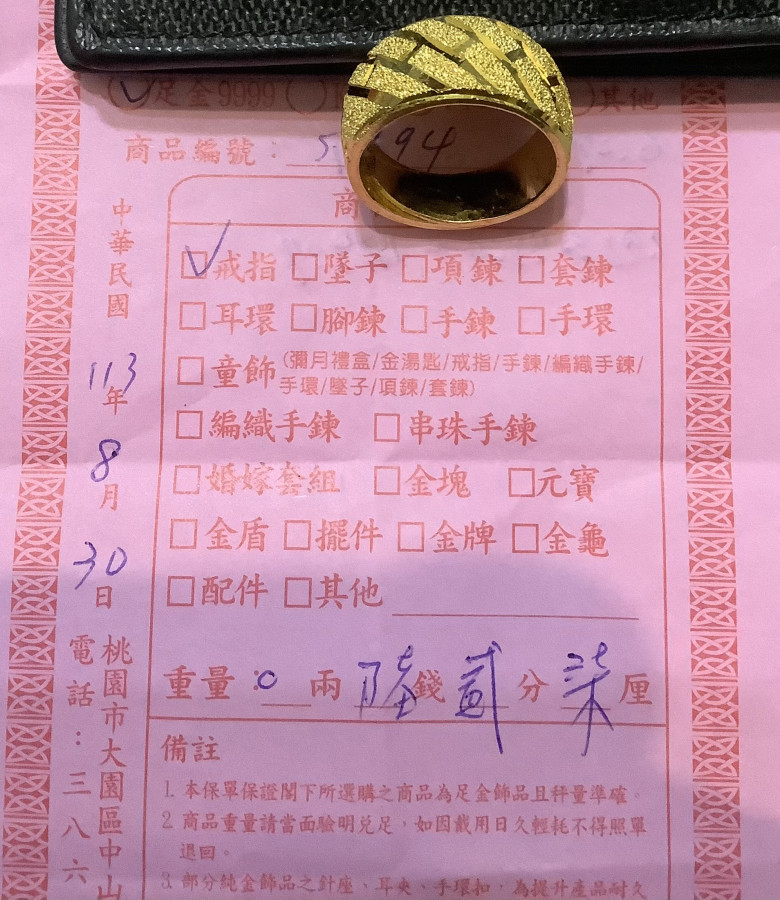 (✓)足金9999 ( ) ( )其他
商品編號：5 94
商
☑戒指 □墜子 □項鍊 □套鍊
□耳環 □腳鍊 □手鍊 □手環
□童飾(彌月禮盒/金湯匙/戒指/手鍊/編織手鍊/
手環/墜子/項鍊/套鍊)
□編織手鍊 □串珠手鍊
□婚嫁套組 □金塊 □元寶
□金盾 □擺件 □金牌 □金龜
□配件 □其他
重量：0兩陸錢貳分柒厘
備註
1. 本保單保證閣下所選購之商品為足金飾品且秤量準確。
2. 商品重量請當面驗明兌足，如因戴用日久輕耗不得照單
退回。
3. 部分純金飾品之針座、耳夾、手環扣，為提升產品耐久
中華民國113年8月30日
桃園市大園區中山
電話：三八六